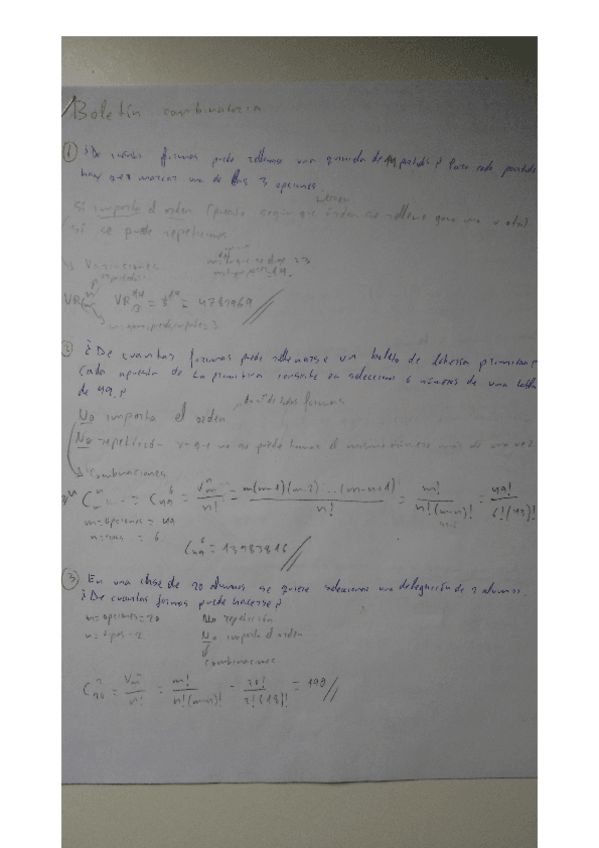 Boletín combinatoria
① ¿De cuántas formas puede rellenarse una quiniela de 14 partidos? Para cada partido
hay que marcar una de las 3 opciones
Sí importa el orden (puesto según que orden se rellene gana uno u otro)
Sí se puede repetir
Variaciones
VR VR 14 3 = 3^14 = 4782969 //
② ¿De cuantas formas puede rellenarse un boleto de lotería primitiva,
cada apuesta de la primitiva consiste en seleccionar 6 números de una tabla
de 49?
No importa el orden
No repetición ya que no se puede tomar el mismo número más de una vez
Combinaciones
C n m = C 6 49 = V n m / n! = m(m-1)(m-2)...(m-n+1) / n! = m! / n!(m-n)! = 49! / 6!(43)!
m = opciones = 49
n = = 6
C 6 49 = 13983816 //
③ En una clase de 20 alumnos se quiere seleccionar una delegación de 2 alumnos.
¿De cuantas formas puede hacerse?
m = opciones = 20 No repetición
n = = 2 No importa el orden
Combinaciones
C 2 20 = V n m / n! = m! / n!(m-n)! = 20! / 2!(18)! = 190 //